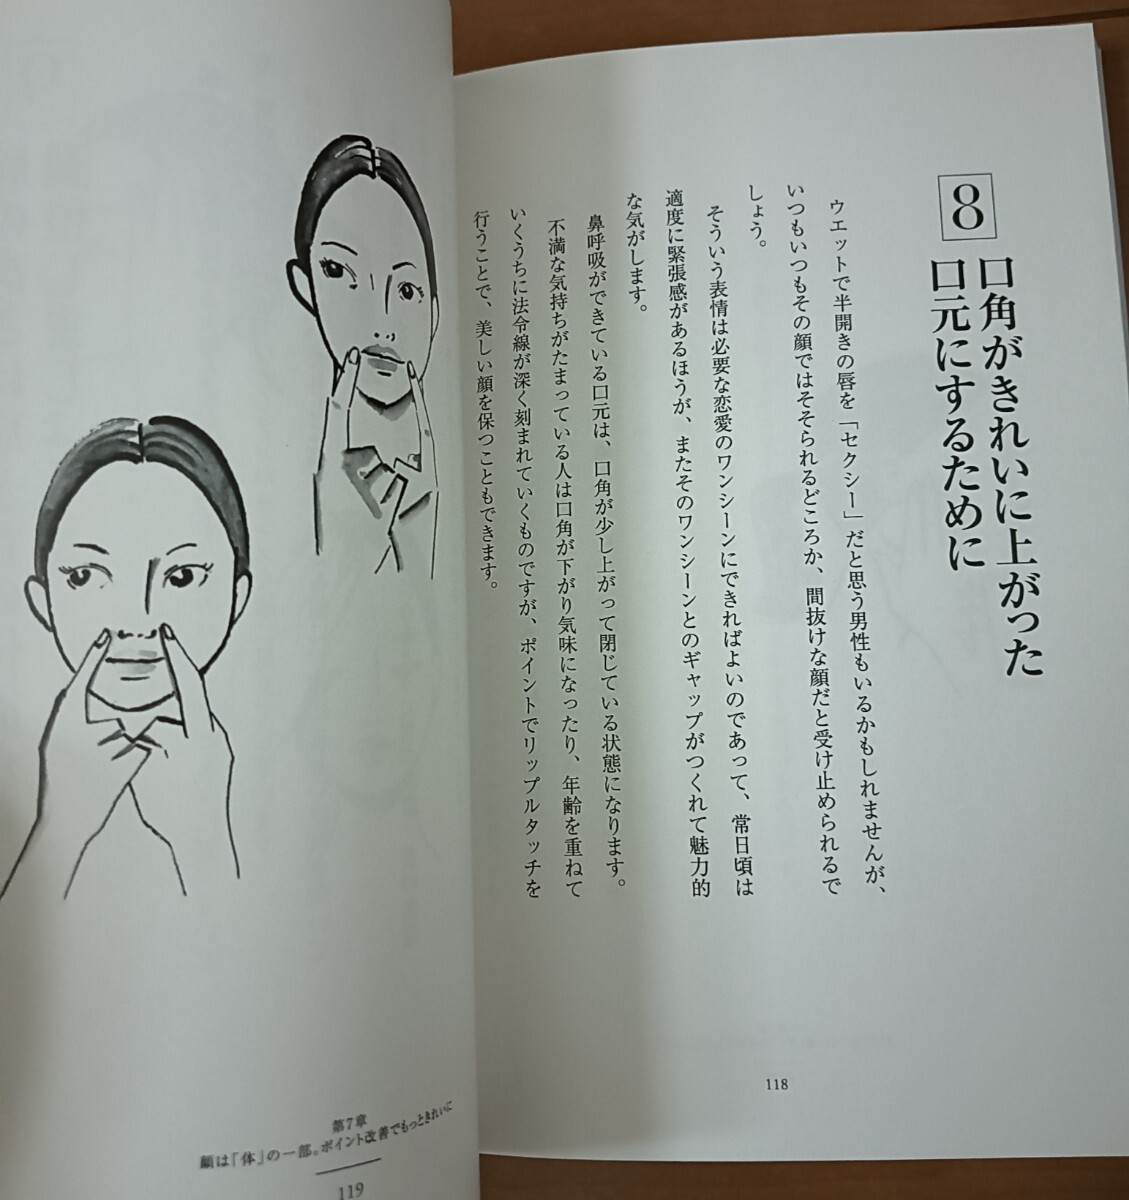 8
口角がきれいに上がった
口元にするために
ウエットで半開きの唇を「セクシー」だと思う男性もいるかもしれませんが、
いつもいつもその顔ではそそられるどころか、間抜けな顔だと受け止められるで
しょう。
そういう表情は必要な恋愛のワンシーンにできればよいのであって、常日頃は
適度に緊張感があるほうが、またそのワンシーンとのギャップがつくれて魅力的
な気がします。
鼻呼吸ができている口元は、口角が少し上がって閉じている状態になります。
不満な気持ちがたまっている人は口角が下がり気味になったり、年齢を重ねて
いくうちに法令線が深く刻まれていくものですが、ポイントでリップルタッチを
行うことで、美しい顔を保つこともできます。
118
第7章
顔は「体」の一部。ポイント改善でもっときれいに
119